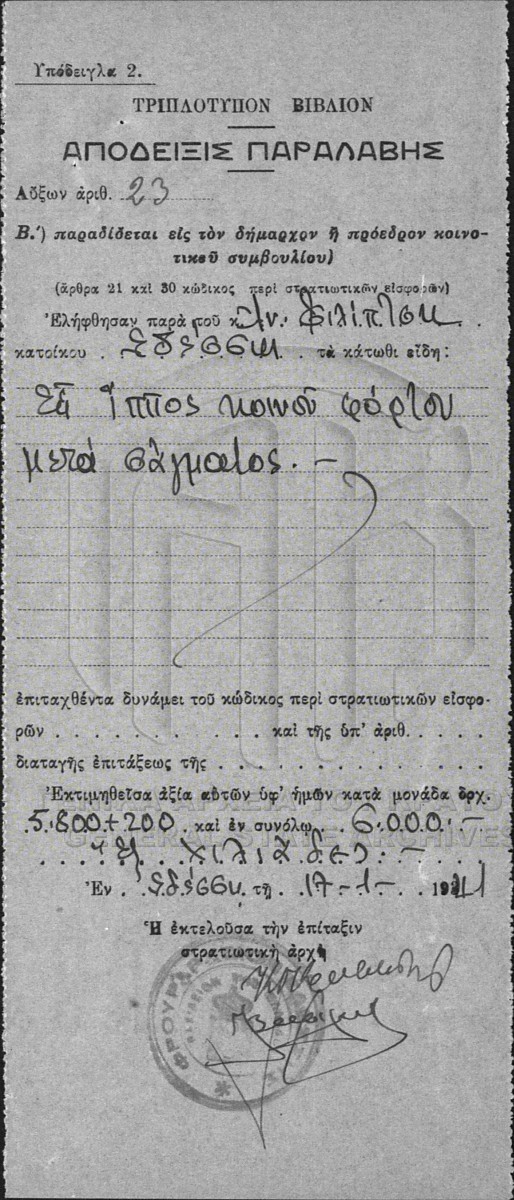 Υπόδειγλα 2.
ΤΡΙΠΛΟΤΥΠΟΝ ΒΙΒΛΙΟΝ
ΑΠΟΔΕΙΞΙΣ ΠΑΡΑΛΑΒΗΣ
Αὔξων ἀριθ. 23
Β.΄) παραδίδεται εἰς τὸν δήμαρχον ἢ πρόεδρον κοινο-
τικοῦ συμβουλίου)
(ἄρθρα 21 καὶ 30 κώδικος περὶ στρατιωτικῶν εἰσφορῶν)
Ἐλήφθησαν παρὰ τοῦ κ.
κατοίκου . τὰ κάτωθι εἴδη :
Ἵππος κοινοῦ φόρτου
μετὰ σάγματος. –
ἐπιταχθέντα δυνάμει τοῦ κώδικος περὶ στρατιωτικῶν εἰσφο-
ρῶν . . . . . . . . . . . . . καὶ τῆς ὑπ' ἀριθ. . . . .
διαταγῆς ἐπιτάξεως τῆς . . . . . . . . . . . . . . .
Ἐκτιμηθεῖσα ἀξία αὐτῶν ὑφ' ἡμῶν κατὰ μονάδα δρχ.
5.800+200 καὶ ἐν συνόλῳ 6.000.–
χιλιάδες.–
Ἐν . τῇ . 17-1- 1941
Ἡ ἐκτελοῦσα τὴν ἐπίταξιν
στρατιωτικὴ ἀρχὴ
ΦΡΟΥΡΑΡ
GENERAL STATE ARCHIVES